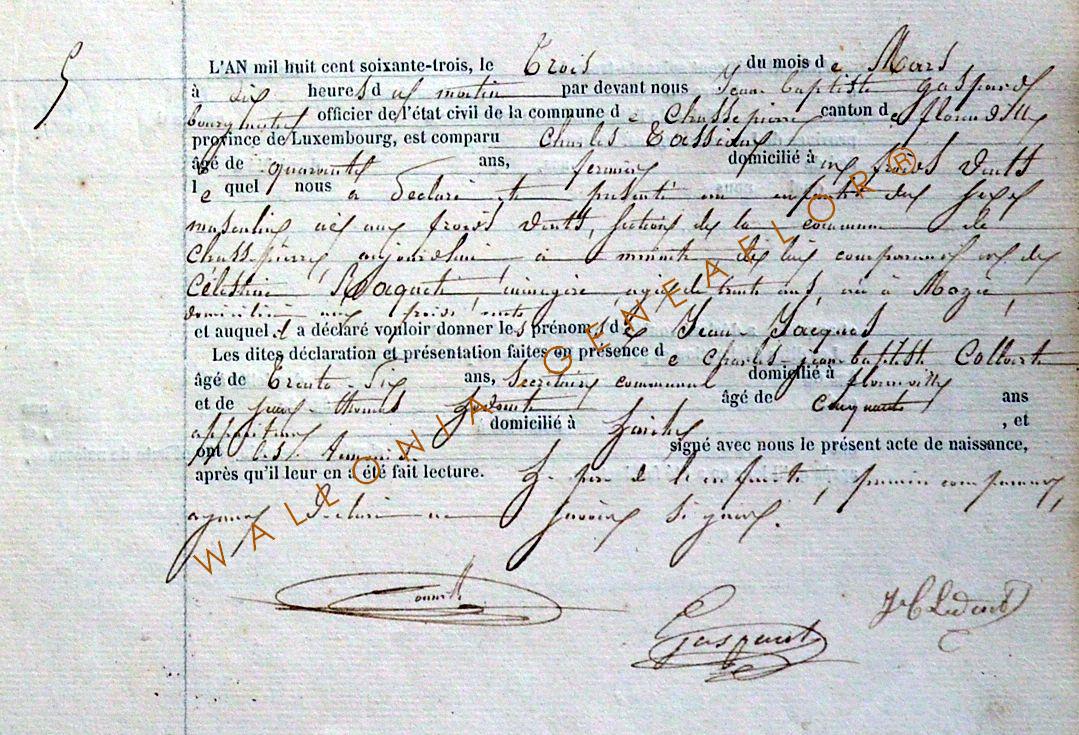 5
L'AN mil huit cent soixante-trois, le Trois du mois de Mars
à dix heures d matin par devant nous Jean baptiste gaspard
bourgmestre officier de l'état civil de la commune de Chassepierre canton de florenville
province de Luxembourg, est comparu Charles
âgé de quarante ans, fermier domicilié à froids vents
le quel nous a déclaré et présenté un enfant du sexe
masculin né aux froids vents, section de la commune de
Chassepierre, aujourdhui à minuit de lui comparant et de
Célestine ménagère, agée de trente ans, née à
domiciliée aux froids vents
et auquel il a déclaré vouloir donner les prénoms de Jean Jacques
Les dites déclaration et présentation faites en présence de Charles jean baptiste
âgé de Trente Six ans, Secrétaire communal domicilié à florenville
et de jean thomas âgé de cinquante ans
domicilié à , et
ont les témoins signé avec nous le présent acte de naissance,
après qu'il leur en a été fait lecture. Le père de l'enfant, premier comparant,
ayant Déclaré ne Savoir Signer.
Gaspard
WALLONIA GENEALOR®